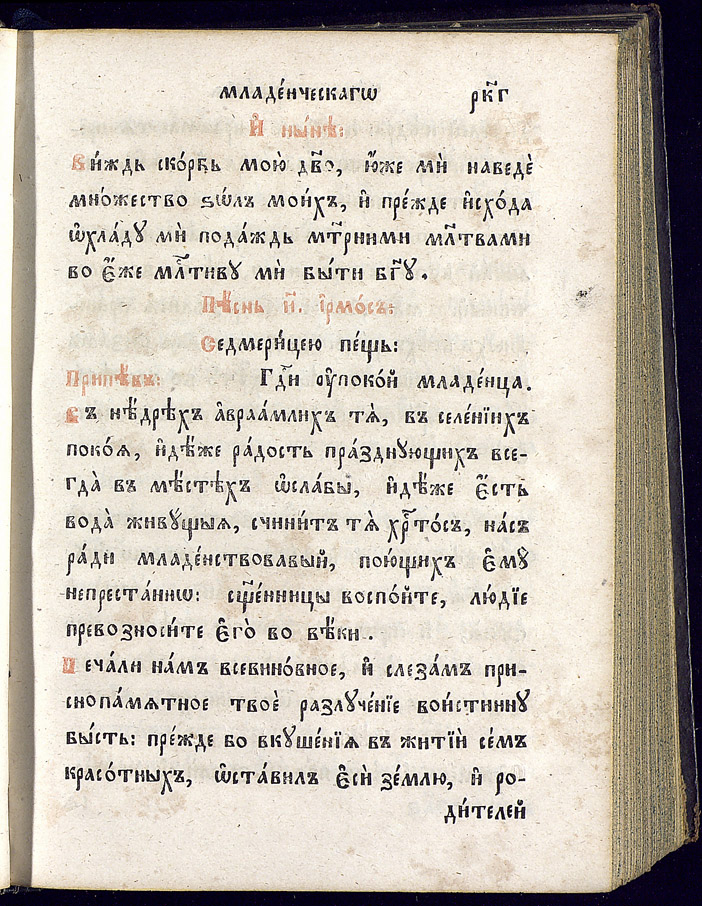 младе́нческагѡ рк҃г
И҆ ны́нѣ:
Ви́ждь ско́рбь мою̀ дв҃о, ю҆́же мѝ наведѐ
мно́жество ѕѡ́лъ мои́хъ, и҆ пре́жде и҆схо́да
ѡ҆хла́ду мѝ пода́ждь мт҃рними мл҃твами
во є҆́же мл҃тиву мѝ бы́ти бг҃у.
Пѣ́снь и҃. і҆рмо́съ:
Седмери́цею пе́щь:
Припѣ́въ: Гдⷭ҇и ᲂу҆поко́й младе́нца.
Въ нѣ́дрѣхъ а҆враа́млихъ тѧ̀, въ селе́нїихъ
поко́ѧ, и҆дѣ́же ра́дость пра́зднующихъ все-
гда̀ въ мѣ́стѣхъ ѡ҆сла́бы, и҆дѣ́же є҆́сть
вода̀ живу́щыѧ, счини́тъ тѧ̀ хрⷭ҇то́съ, на́съ
ра́ди младе́нствовавый, пою́щихъ є҆му̀
непреста́ннѡ: сщ҃е́нницы воспо́йте, лю́дїе
превозноси́те є҆го̀ во вѣ́ки.
Печа́ли на́мъ всевино́вное, и҆ слеза́мъ при-
снопа́мѧтное твоѐ разлуче́нїе вои́стинну
бы́сть: пре́жде бо вкуше́нїѧ въ житїѝ се́мъ
красо́тныхъ, ѡ҆ста́вилъ є҆сѝ зе́млю, и҆ ро-
ди́телей